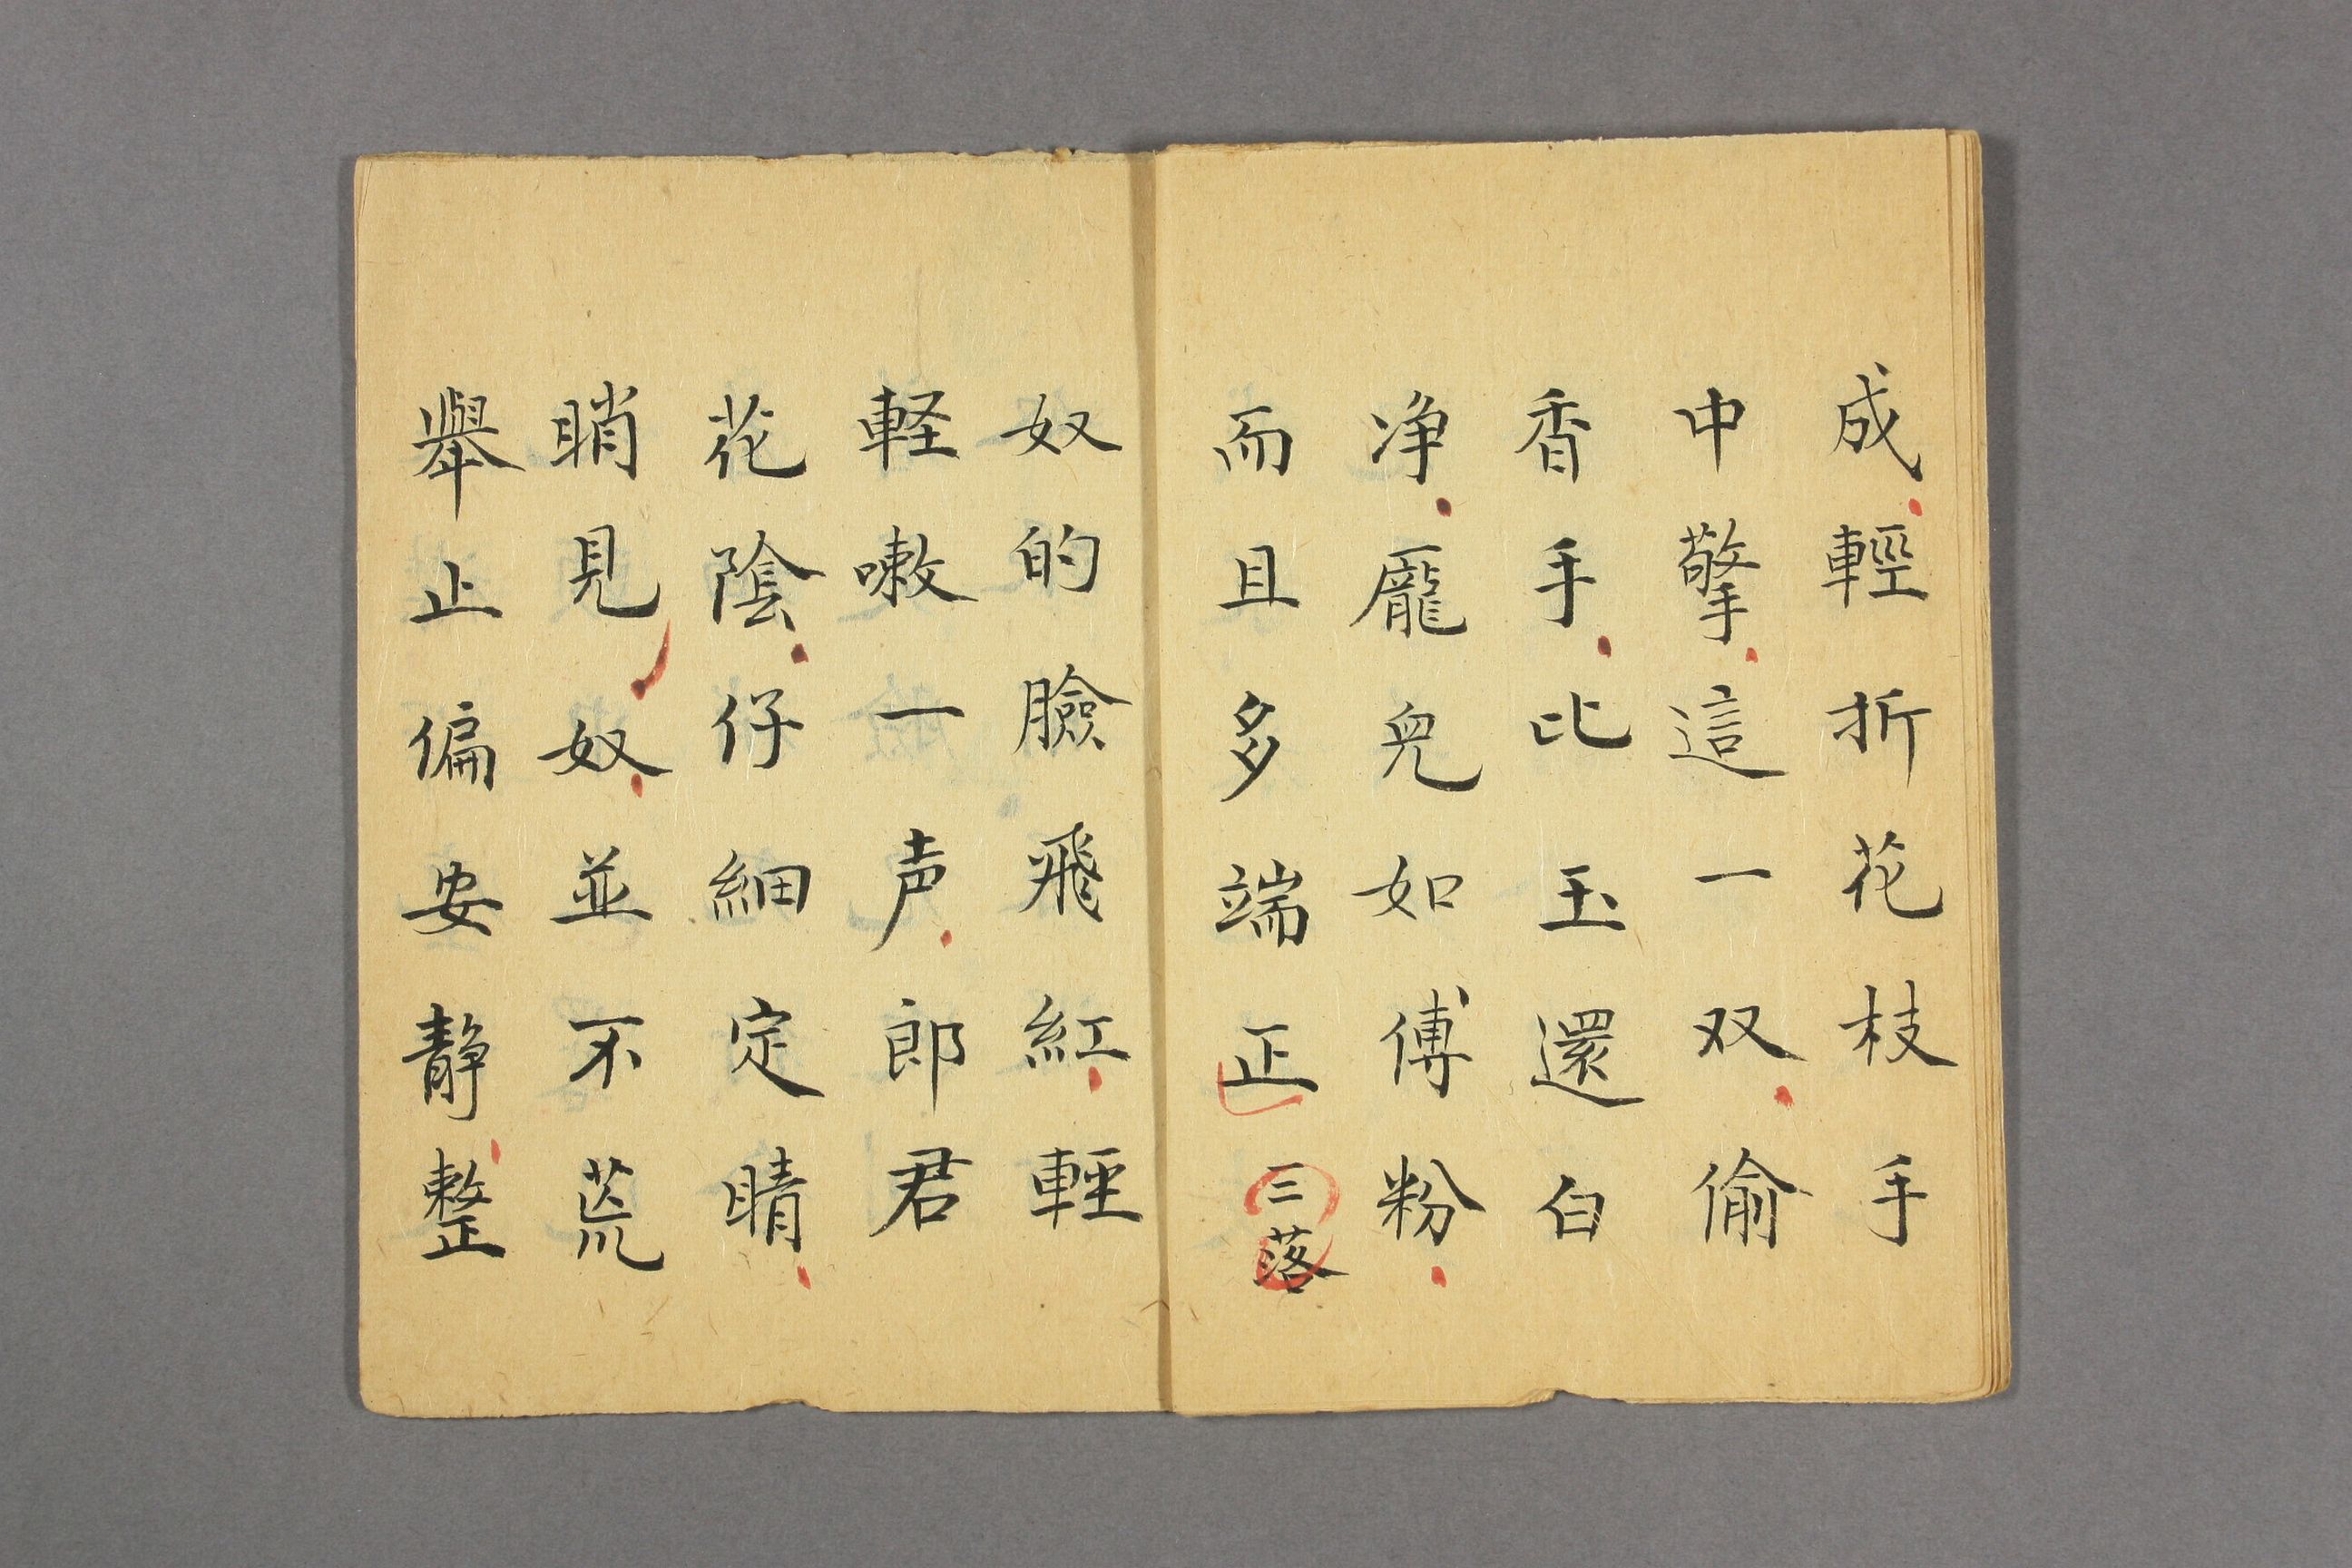 成輕折花枝手
中擎這一双偷
香手比玉還白
净龎皃如傅粉
而且多端正三落
奴的臉飛紅輕
軽嗽一声郎君
花陰仔細定睛
睄見奴並不荒
舉止偏安靜整